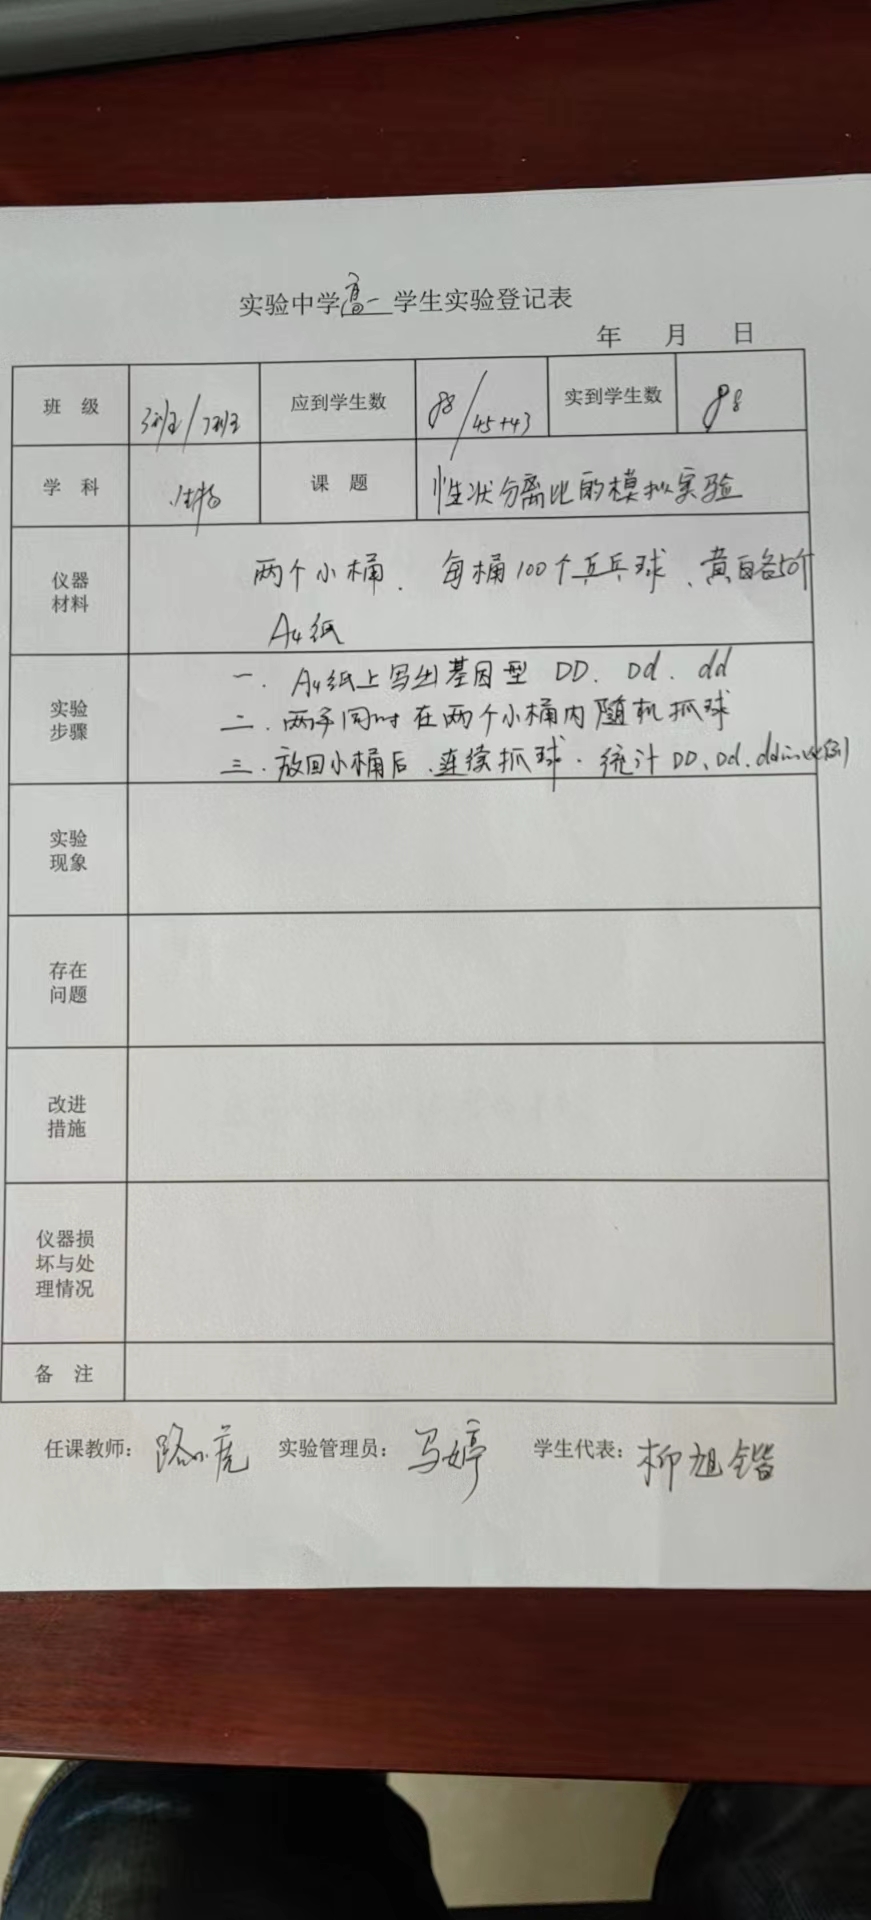 实验中学高一学生实验登记表
年 月 日
班 级 3班/7班 应到学生数 88/45+43 实到学生数 88
学 科 生物 课 题 性状分离比的模拟实验
仪器材料 两个小桶、每桶100个乒乓球、黄白各50个
A4纸
实验步骤 一、A4纸上写出基因型 DD、Dd、dd
二、两手同时在两个小桶内随机抓球
三、放回小桶后、连续抓球、统计DD、Dd、dd的比例
实验现象
存在问题
改进措施
仪器损坏与处理情况
备 注
任课教师：路小虎 实验管理员：马婷 学生代表：柳旭锴